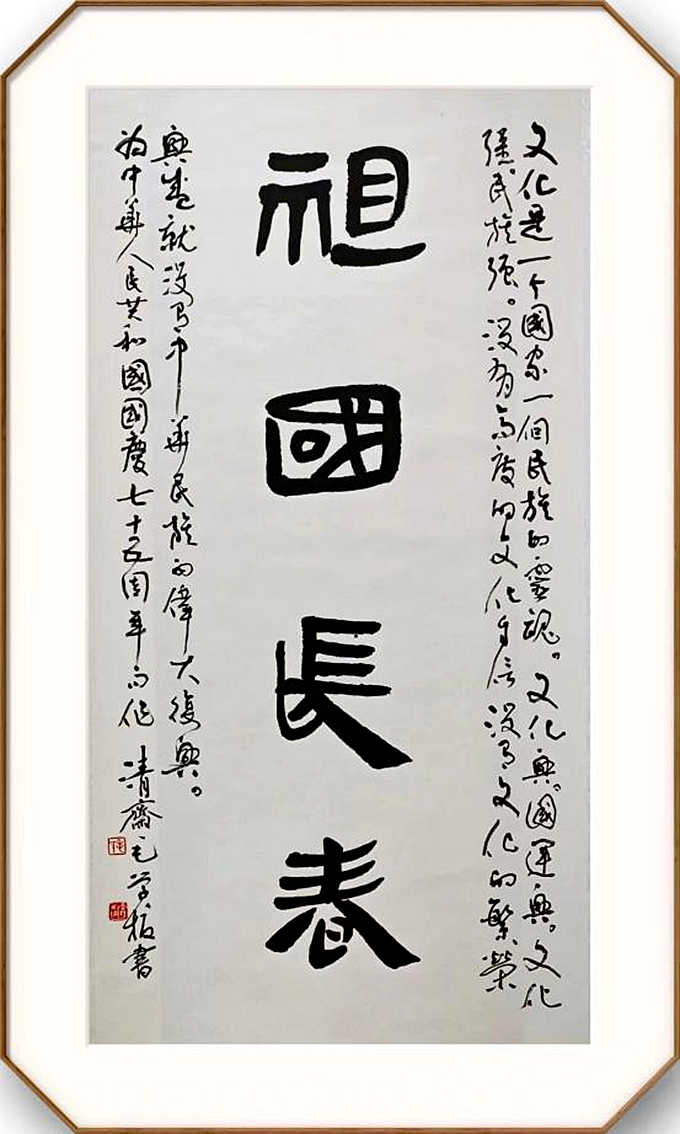 文化是一个國家一個民族的靈魂。文化興。國運興。文化
强民族强。没有高度的文化自信没有文化的繁榮
祖國長春
興盛就没有中華民族的偉大復興。
为中華人民共和國國慶七十五周年而作 清齋毛学板書